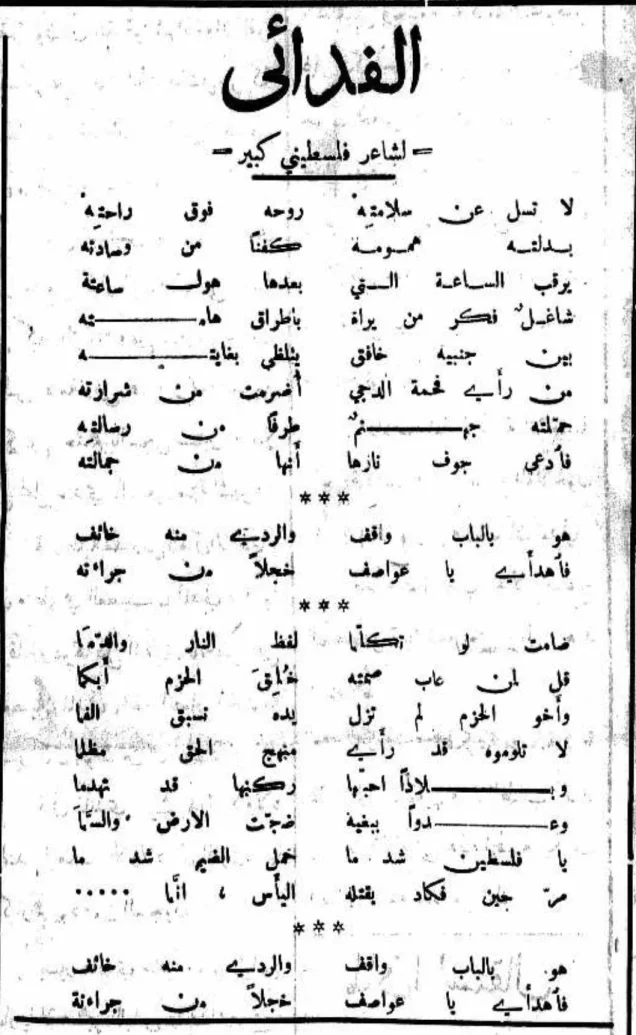 الفدائي
= لشاعر فلسطيني كبير =
لا تسل عن سلامته روحه فوق راحته
بدلته همومه كفناً من وسادته
يرقب الساعة التي بعدها هول ساعته
شاغل فكر من يراه باطراق هامته
بين جنبيه خافق يتلظى بغايته
من رأى فحمة الدجى أضرمت من شرارته
حملته جهنم طرفاً من رسالته
فادعى جوف نارها أنها من حمالته
***
هو بالباب واقف والردى منه خائف
فاهدأي يا عواصف خجلاً من جراءته
***
صامت لو تكلما لفظ النار والدما
قل لمن عاب صمته خلق الحزم أبكما
وأخو الحزم لم تزل يده تسبق الفما
لا تلوموه قد رأى منهج الحق مظلما
وبلاداً احبها ركنها قد تهدما
وعدواً ببغيه ضجت الارض والسما
يا فلسطين شد ما حمل الضيم شد ما
مر حين فكاد يقتله اليأس ، انما .....
***
هو بالباب واقف والردى منه خائف
فاهدأي يا عواصف خجلاً من جراءته